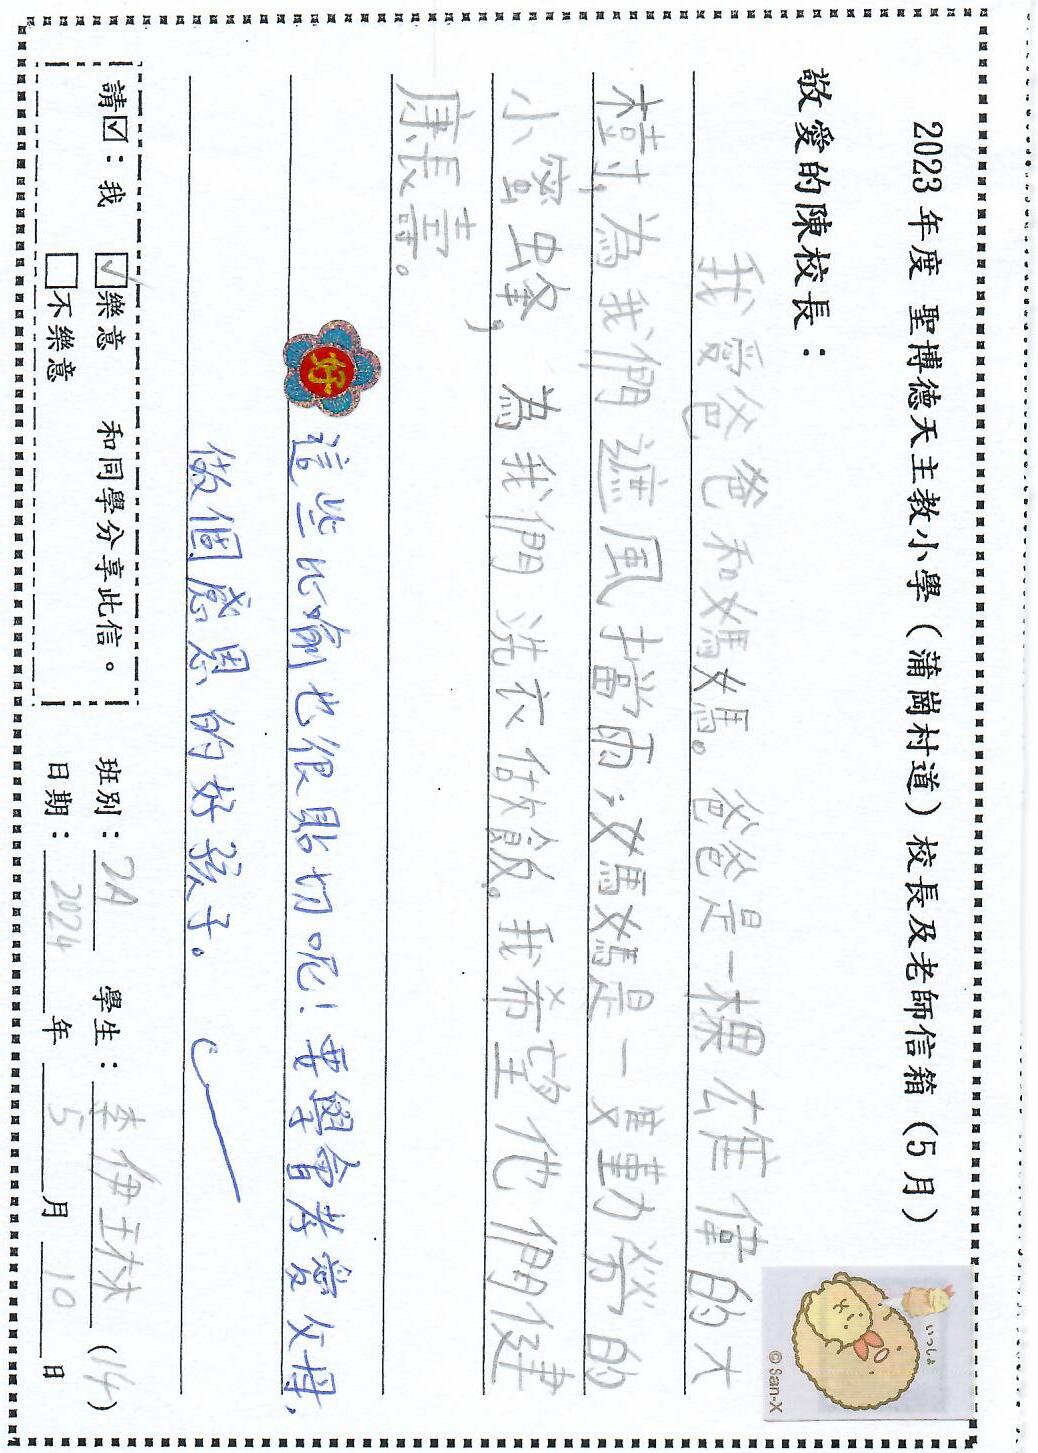 2023 年度 聖博德天主教小學（蒲崗村道）校長及老師信箱（5 月）
敬愛的陳校長：
我愛爸爸和媽媽。爸爸是一棵雄偉的大
樹，為我們遮風擋雨；媽媽是一隻勤勞的
小蜜蜂，為我們洗衣做飯。我希望他們健
康長壽。
好
這些比喻也很貼切呢！要學會孝愛父母，
做個感恩的好孩子。
請☑：我 ☑樂意 和同學分享此信。
☐不樂意
班別：2A 學生：李伊琳 (14)
日期：2024 年 5 月 10 日
いっしょ
© San-X